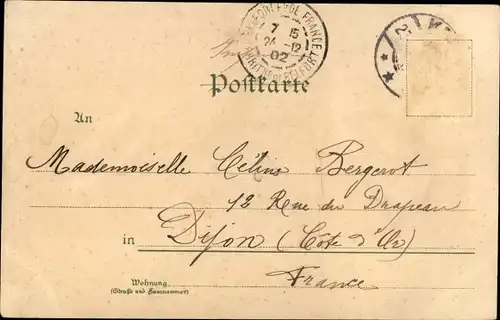 7 15
24 -12
02
Postkarte
An
Mademoiselle Céline Bergerot
12 Rue du Drapeau
in Dijon (Côte d'Or)
France
Wohnung
(Straße und Hausnummer)